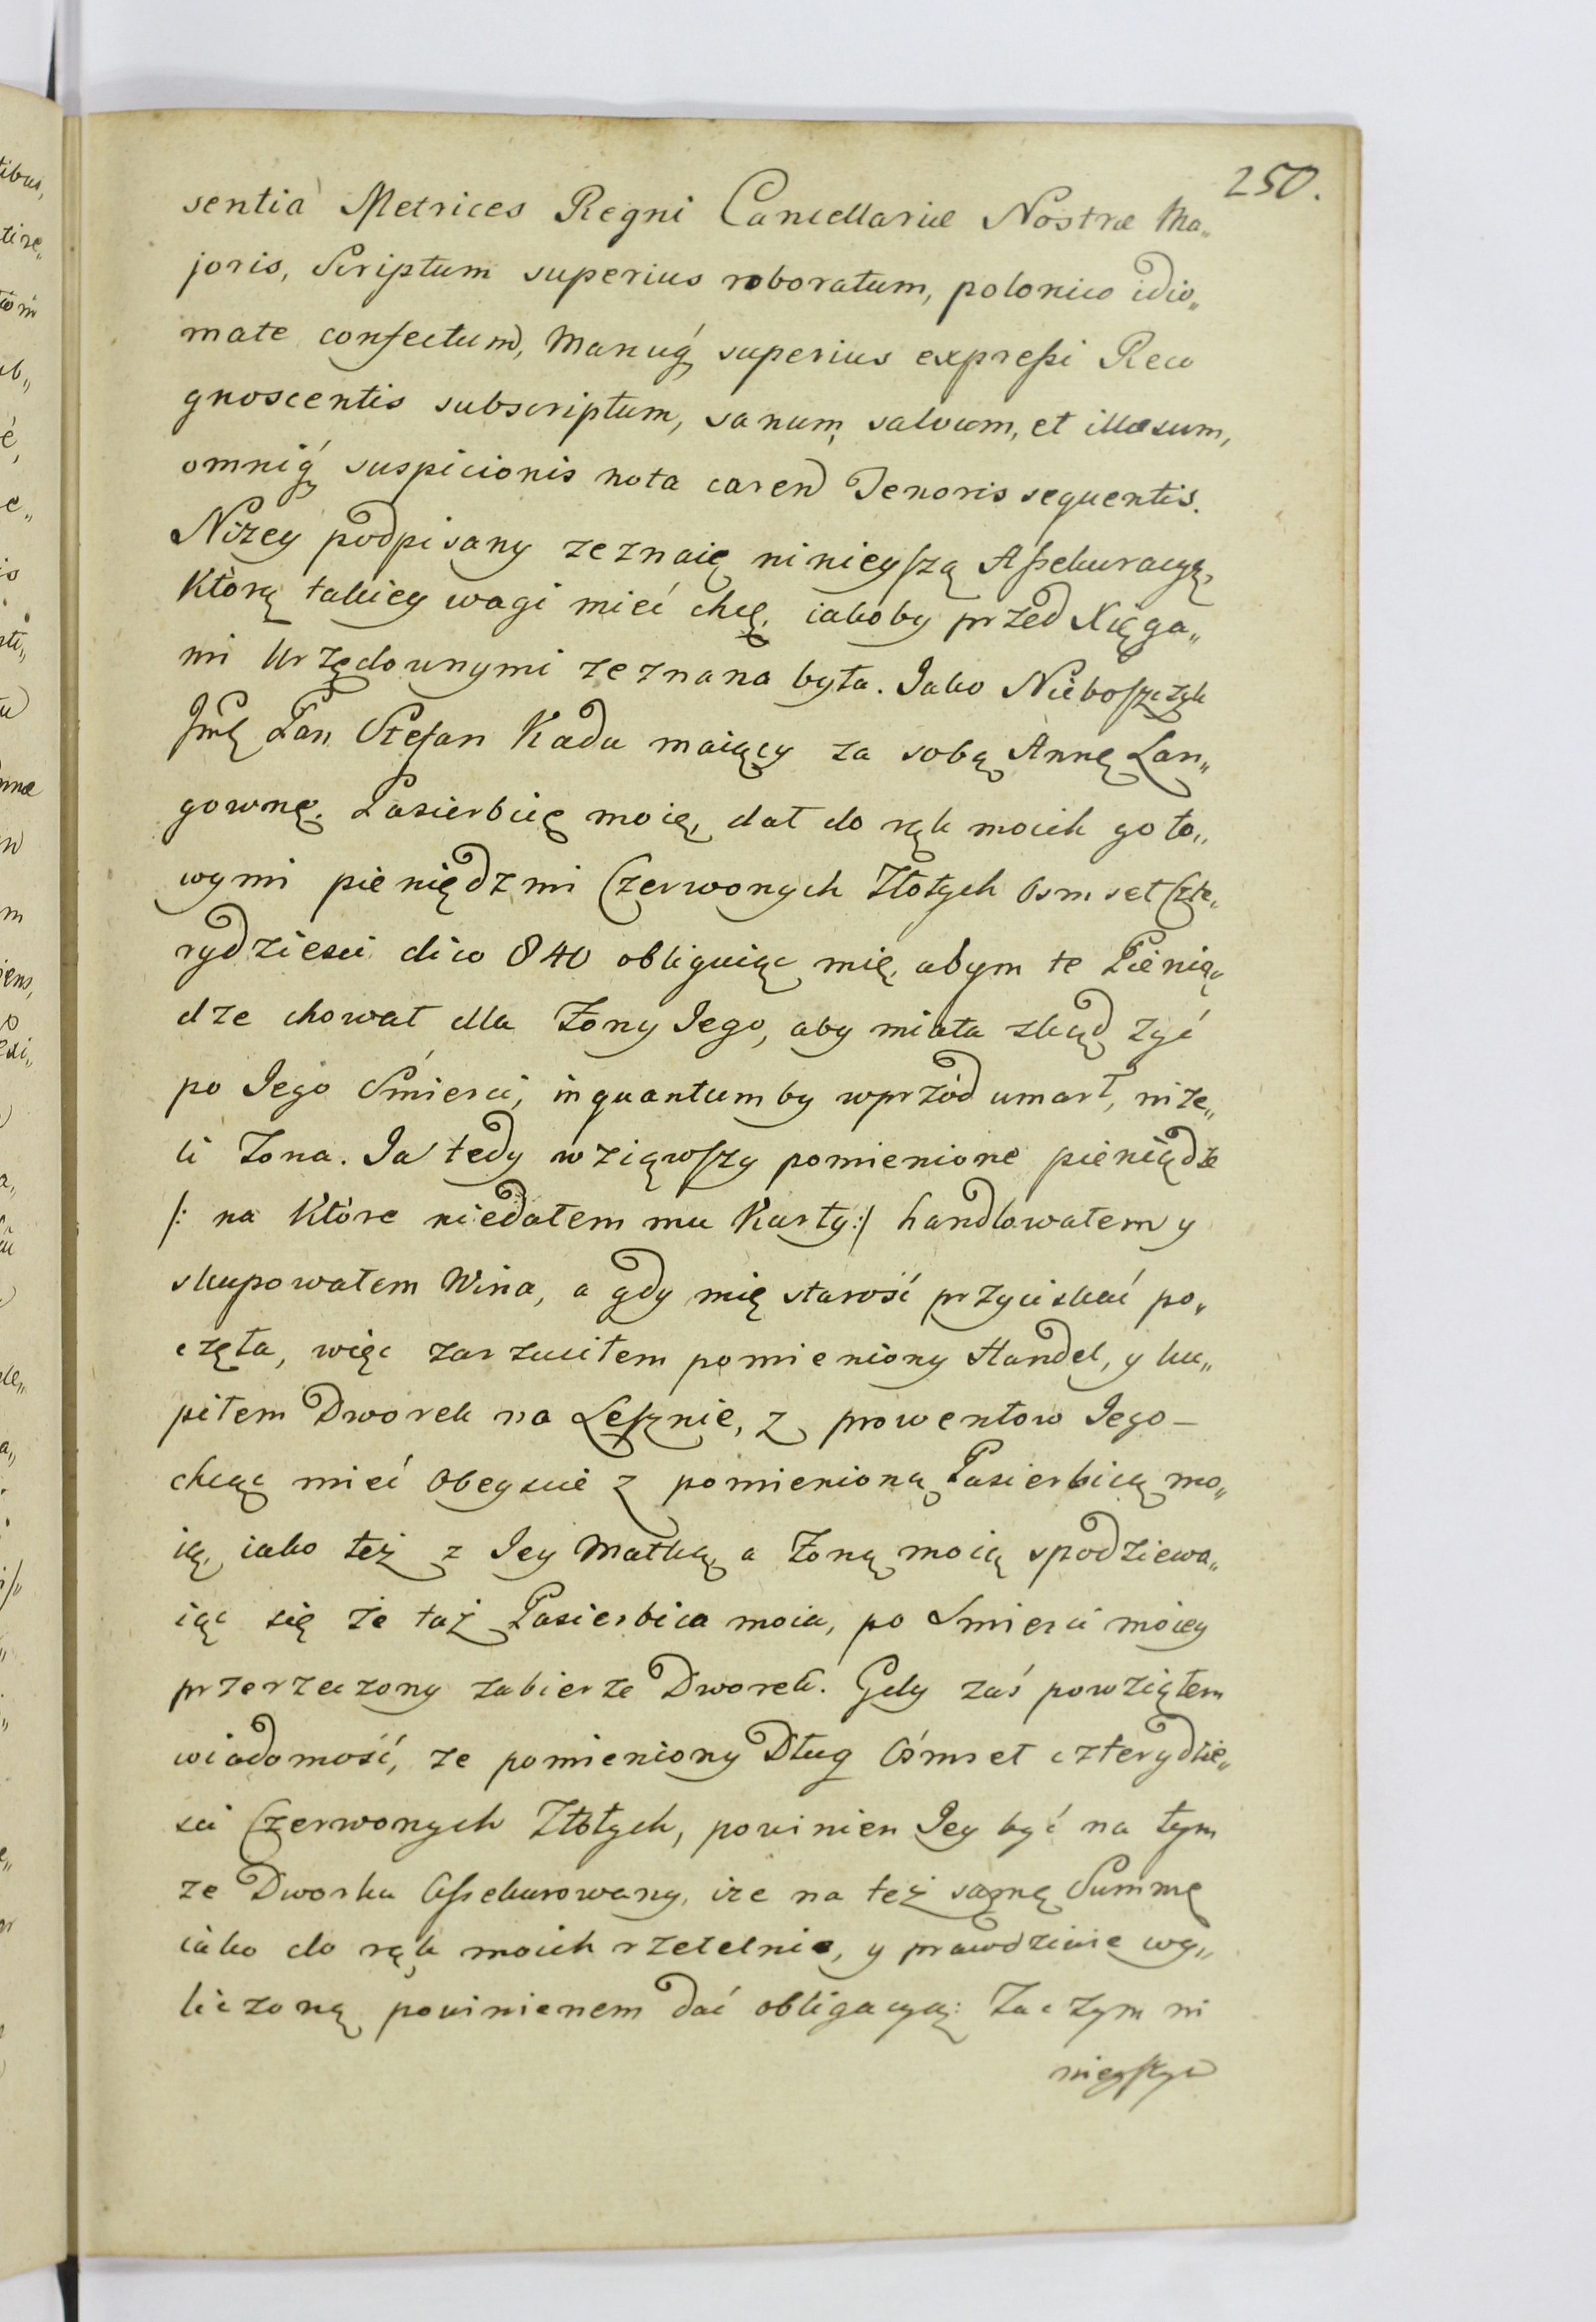 250.
sentia Metrices Regni Cancellariæ Nostræ Ma„
joris, Scriptum superius roboratum, polonico idio„
mate confectum, Manuq́ superius expreßi Reco
gnoscentis subscriptum, sanum, salvum, et illæsum,
omniq́ suspicionis nota caren Tenoris sequentis.
Niżey podpisany zeznaię ninieyszą Aßekuracyą,
Którą takiey wagi mieć chcę, iakoby przed Xięga„
mi Urzędownymi zeznana była. Jako Nieboszczyk
Jmć Pan Stefan Kada maiący za sobą Annę Lan„
gownę, Pasierbicę moię, dał do rąk moich goto„
wymi pieniędzmi Czerwonych Złotych Osmset Czte„
rydziesci dico 840 obliguiąc mię, abym te Pienią„
dze chował dla Żony Jego, aby miała zkąd żyć
po Jego Śmierci, inquantum by wprzód umarł, niże„
li Żona. Ja tedy wziąwszy pomienione pieniądze
/: na Które niedałem mu Karty:/ handlowałem y
skupowałem Wina, a gdy mię starość przyciskać po„
częła, więc zarzuciłem pomieniony Handel, y ku„
piłem Dworek na Lesznie, z prowentow Jego –
chcąc mieć Obeyscie z pomienioną Pasierbicą mo„
ią, iako też z Jey Matką, a Żoną moią spodziewa„
iąc się że taż Pasierbica moia, po Smierci moiey
przerzeczony zabierze Dworek. Gdy zaś powziąłem
wiadomość, ze pomieniony Dług Ośmset czterydzie„
sci Czerwonych Złotych, powinien Jey być na tym
ze Dworku Aßekurowany, iże na też samę Summę
iako do rąk moich rzetelnie, y prawdziwie wy„
liczoną powinienem dać obligacyą: Zaczym ni
nieyszym